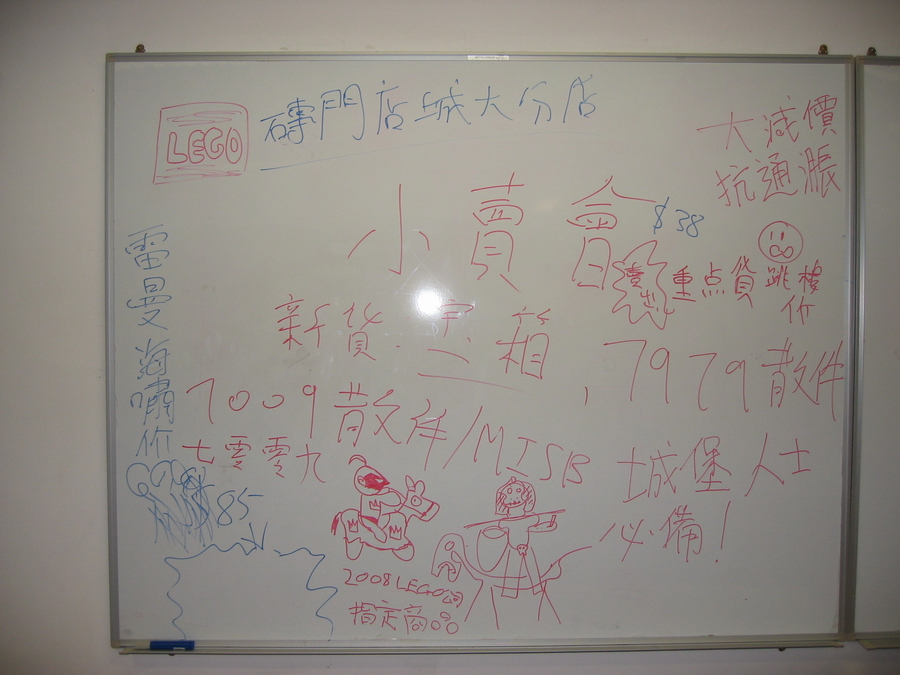 LEGO 磚門店城大分店
大減價
抗通漲
小賣會
$38
賣出
重点貨 跳樓价
新貨.空箱
7009散件/MISB
七零零九
, 7979散件
城堡人士
必備!
雷曼海嘯价
$85
2008 LEGO公司
指定商品